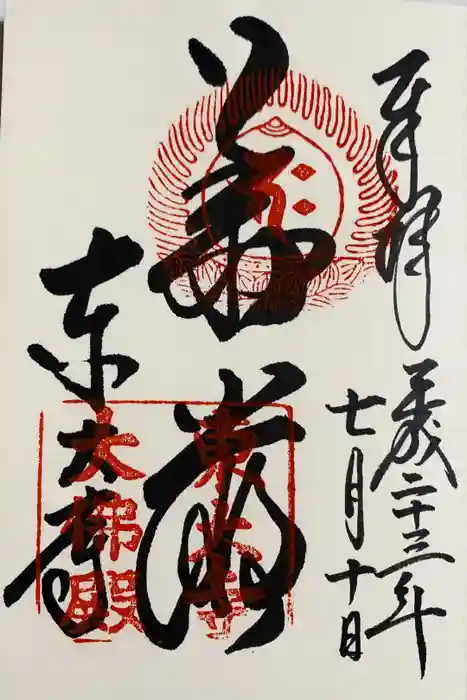 奉拝
平成二十三年
七月十日
華厳
東大寺
東大寺
大佛殿